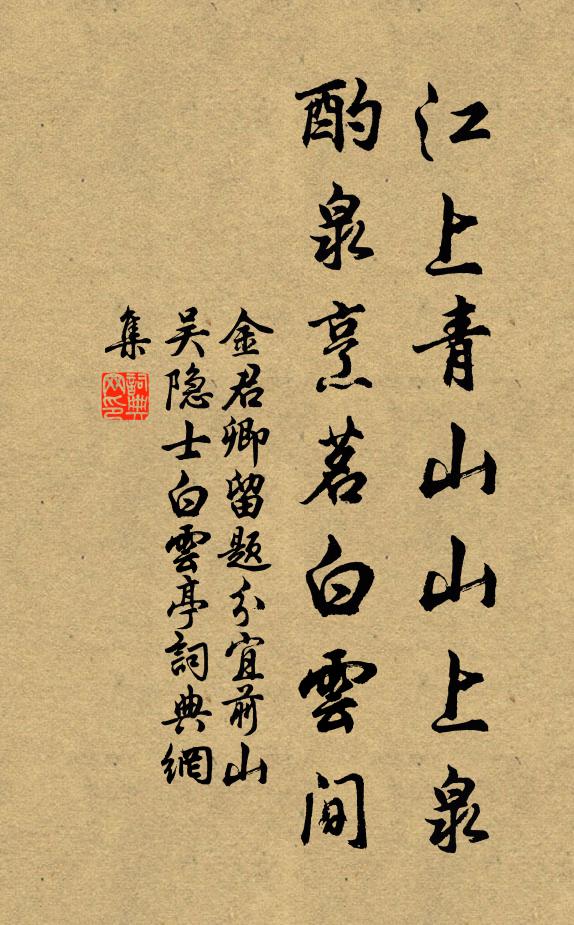 江上青山山上泉
酌泉烹茗白雲間
金君卿留題分宜前山
吴隐士白雲亭詞典網
集
詞典網印